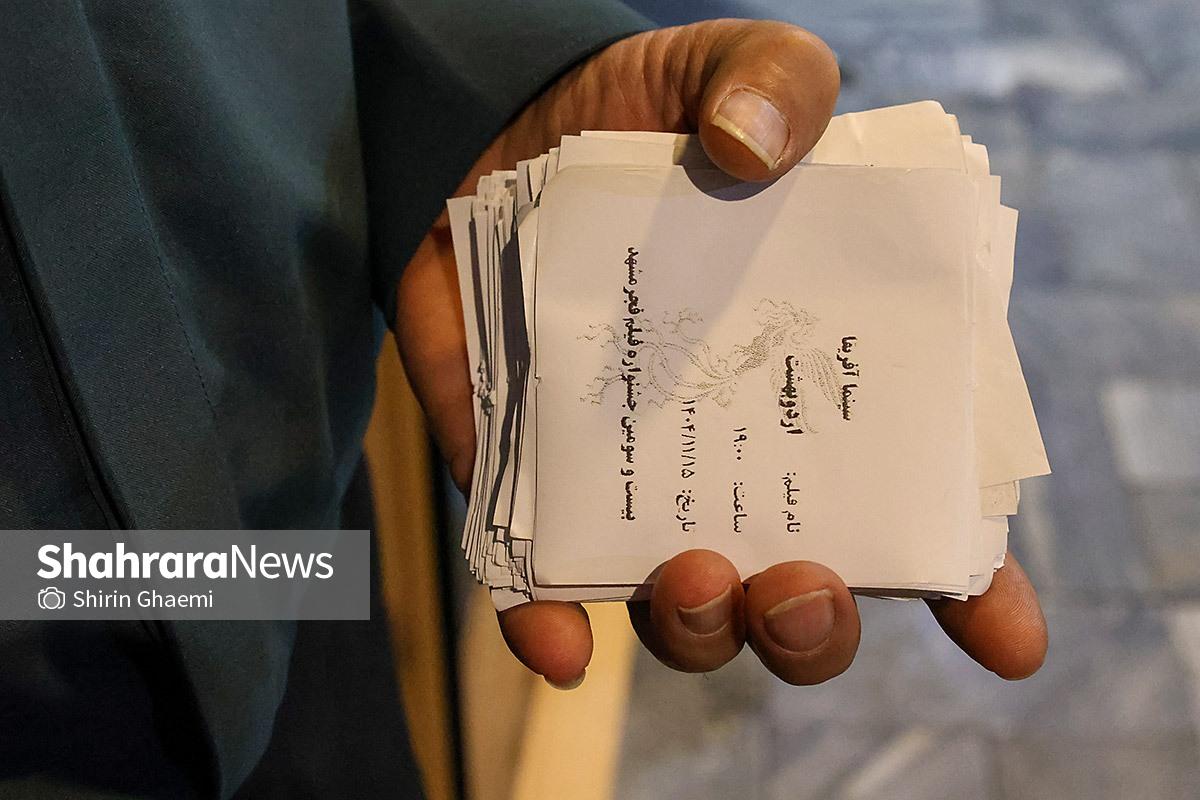 سینما آفریقا
نام فیلم: اردوبهشت
ساعت: ۱۹:۰۰
تاریخ: ۱۴۰۴/۱۱/۱۵
بیست و سومین جشنواره فیلم فجر مشهد
ShahraraNews
Shirin Ghaemi